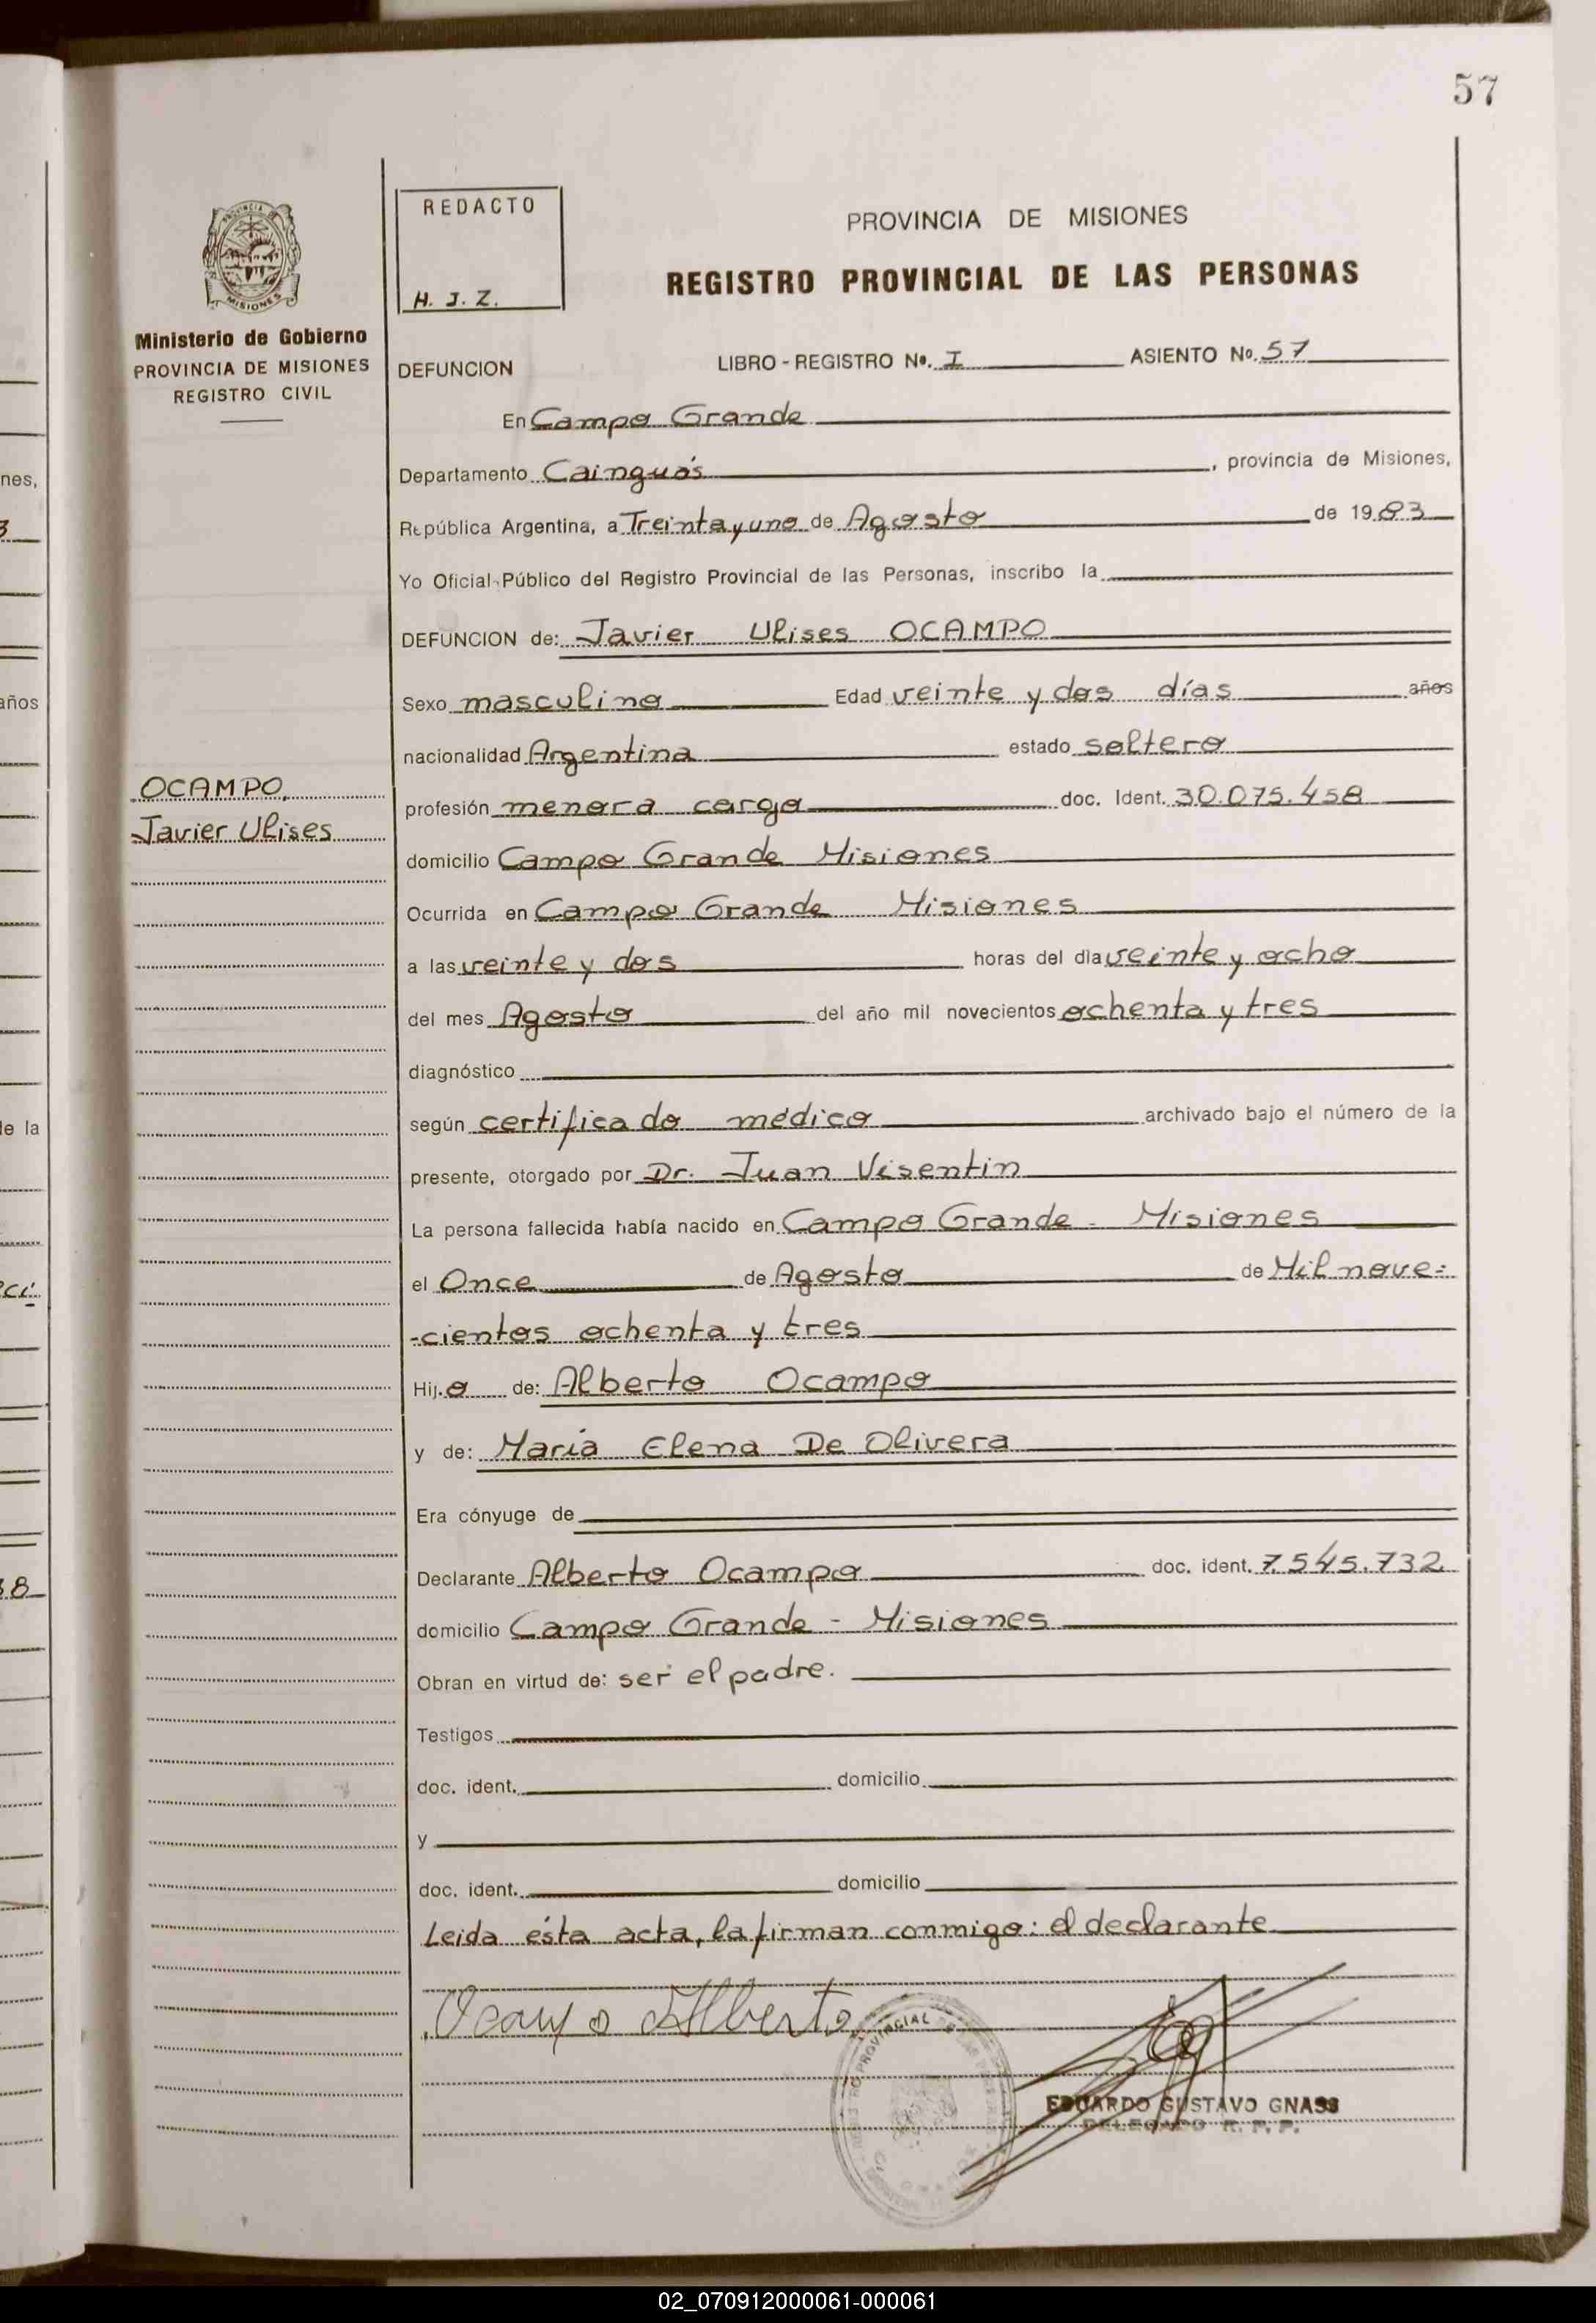 57
REDACTO
H. J. Z.
PROVINCIA DE MISIONES
REGISTRO PROVINCIAL DE LAS PERSONAS
MISIONES
Ministerio de Gobierno
PROVINCIA DE MISIONES
REGISTRO CIVIL
DEFUNCION LIBRO - REGISTRO Nº. I ASIENTO Nº. 57
En Campo Grande
Departamento Cainguás, provincia de Misiones,
República Argentina, a Treinta y uno de Agosto de 1983
Yo Oficial Público del Registro Provincial de las Personas, inscribo la
DEFUNCION de: Javier Ulises OCAMPO
Sexo masculino Edad veinte y dos días años
nacionalidad Argentina estado soltero
OCAMPO,
Javier Ulises
profesión menor a cargo doc. Ident. 30.075.458
domicilio Campo Grande Misiones
Ocurrida en Campo Grande Misiones
a las veinte y dos horas del día veinte y ocho
del mes Agosto del año mil novecientos ochenta y tres
diagnóstico
según certificado médico archivado bajo el número de la
presente, otorgado por Dr. Juan Visentin
La persona fallecida había nacido en Campo Grande - Misiones
el Once de Agosto de Mil nove=
-cientos ochenta y tres
Hij.o de: Alberto Ocampo
y de: María Elena De Olivera
Era cónyuge de
Declarante Alberto Ocampo doc. ident. 7.545.732
domicilio Campo Grande - Misiones
Obran en virtud de: ser el padre.
Testigos
doc. ident. domicilio
y
doc. ident. domicilio
Leida ésta acta, la firman conmigo: el declarante
Ocampo Alberto
PROVINCIAL
EDUARDO GUSTAVO GNASS
DELEGADO R. P. P.
nes,
3
años
de la
8
02_070912000061-000061